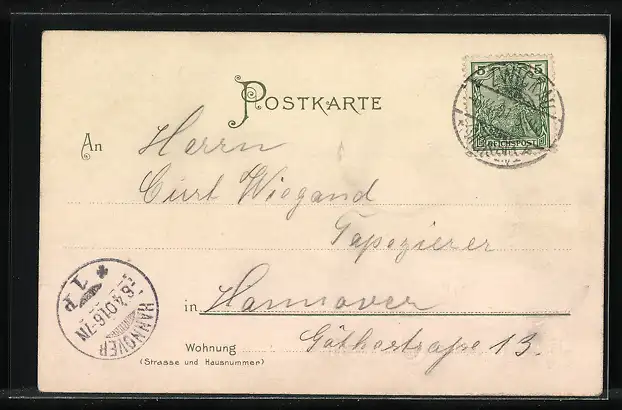 POSTKARTE
5 5
REICHSPOST
An Herrn
Curt Wiegand
Tapezierer
in Hannover
Wohnung Göthestraße 13.
(Strasse und Hausnummer)
HANNOVER
-6.4.01.6-7N